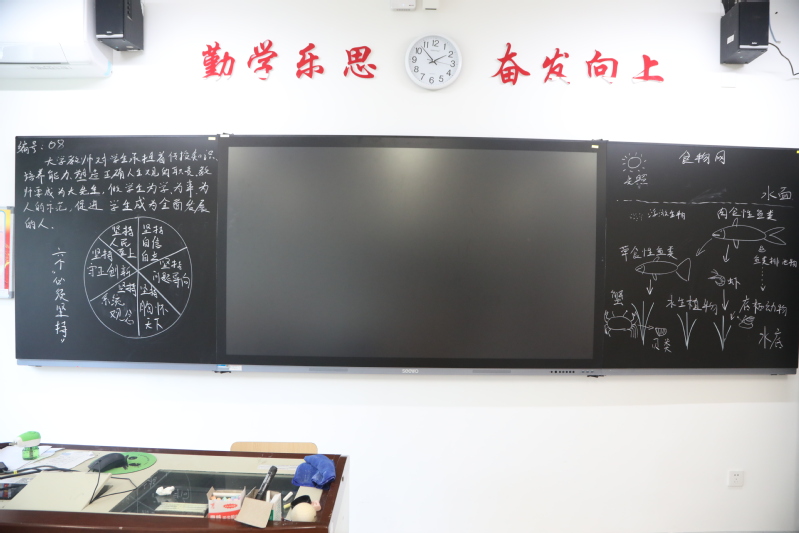 勤学乐思
奋发向上
编号:09
大学教师对学生承担着传授知识
培养能力,塑造正确人生观的职责,教
师要成为大先生,做学生为学、为事、为
人的示范,促进学生成为全面发展
的人。
六个“必须坚持”
坚持
人民
至上
坚持
自信
自立
坚持
守正创新
坚持
问题导向
坚持
系统
观念
坚持
胸怀
天下
食物网
光照
水面
浮游生物
肉食性鱼类
草食性鱼类
鱼类排泄物
虾
蟹
水生植物
底栖动物
贝类
水底